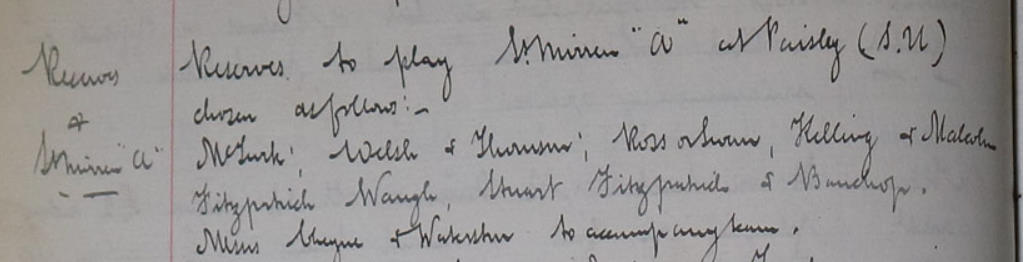 Reserves
&
St Mirren "A"
Reserves to play St. Mirren "A" at Paisley (S.U)
chosen as follows:-
McTurk; Welsh & Thomson; Ross or Swan, Helling & Malcolm
Fitzpatrick Waugh, Stuart Fitzpatrick & Bauchop.
Messrs Cheyne & Waterston to accompany team.